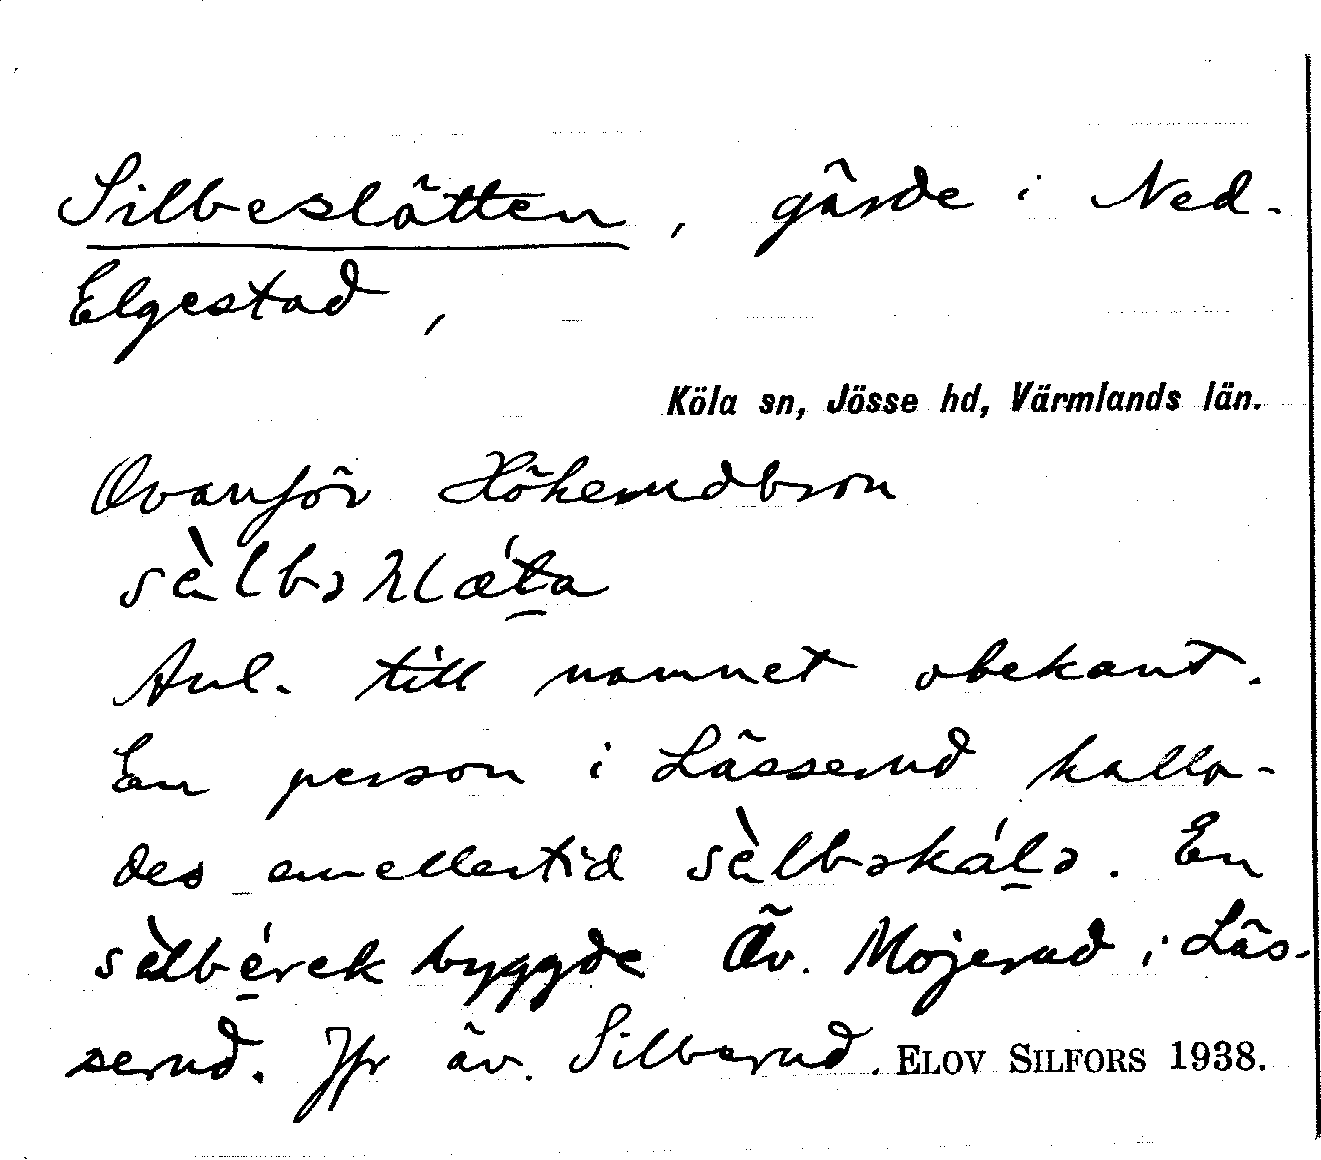 Silbeslätten, gärde i Ned-
Elgestad,
Köla sn, Jösse hd, Värmlands län.
Ovanför Hökerudbron
Anl. till namnet obekant.
En person i Lässerud kalla-
des emellertid sèlbəkálə. En
sèlbérek byggde Öv. Mojerud i Läs-
serud. Jfr äv. Silberud. ELOV SILFORS 1938.